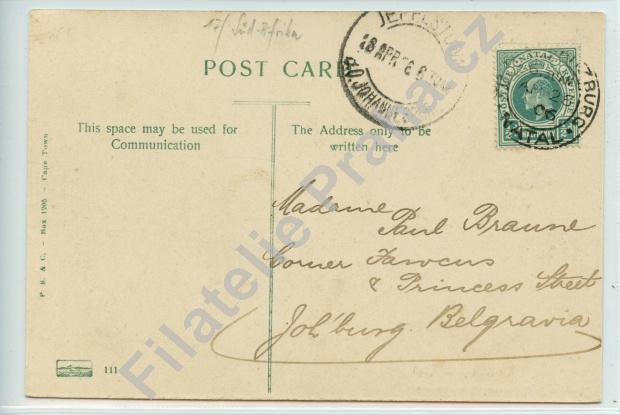 17/ Süd-Afrika
POST CARD
JEPPESTOWN
18 APR 06
JOHANNES
NATAL
BURG
NATAL
This space may be used for
Communication
The Address only to be
written here
Madame
Paul Braune
Corner Fawcus
& Princess Street
Joh'burg. Belgravia
P. S. & C. — Box 1205 — Cape Town
111
Filatelie Praha.cz